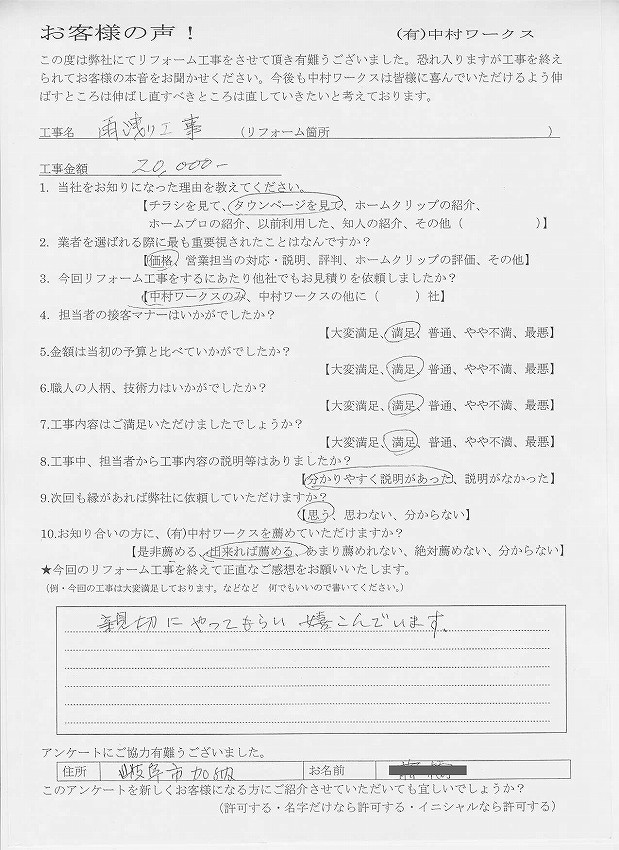 お客様の声！ (有)中村ワークス
この度は弊社にてリフォーム工事をさせて頂き有難うございました。恐れ入りますが工事を終え
られてお客様の本音をお聞かせください。今後も中村ワークスは皆様に喜んでいただけるよう伸
ばすところは伸ばし直すべきところは直していきたいと考えております。
工事名 雨漏り工事 （リフォーム箇所 ）
工事金額 20,000-
1. 当社をお知りになった理由を教えてください。
【チラシを見て、タウンページを見て、ホームクリップの紹介、
ホームプロの紹介、以前利用した、知人の紹介、その他（ ）】
2. 業者を選ばれる際に最も重要視されたことはなんですか？
【価格、営業担当の対応・説明、評判、ホームクリップの評価、その他】
3. 今回リフォーム工事をするにあたり他社でもお見積りを依頼しましたか？
【中村ワークスのみ、中村ワークスの他に（ ）社】
4. 担当者の接客マナーはいかがでしたか？
【大変満足、満足、普通、やや不満、最悪】
5.金額は当初の予算と比べていかがでしたか？
【大変満足、満足、普通、やや不満、最悪】
6.職人の人柄、技術力はいかがでしたか？
【大変満足、満足、普通、やや不満、最悪】
7.工事内容はご満足いただけましたでしょうか？
【大変満足、満足、普通、やや不満、最悪】
8.工事中、担当者から工事内容の説明等はありましたか？
【分かりやすく説明があった、説明がなかった】
9.次回も縁があれば弊社に依頼していただけますか？
【思う、思わない、分からない】
10.お知り合いの方に、(有)中村ワークスを薦めていただけますか？
【是非薦める、出来れば薦める、あまり薦めれない、絶対薦めない、分からない】
★今回のリフォーム工事を終えて正直なご感想をお願いいたします。
（例・今回の工事は大変満足しております。などなど 何でもいいので書いてください。）
親切にやってもらい嬉こんでいます。
アンケートにご協力有難うございました。
住所 岐阜市加納 お名前
このアンケートを新しくお客様になる方にご紹介させていただいても宜しいでしょうか？
（許可する・名字だけなら許可する・イニシャルなら許可する）